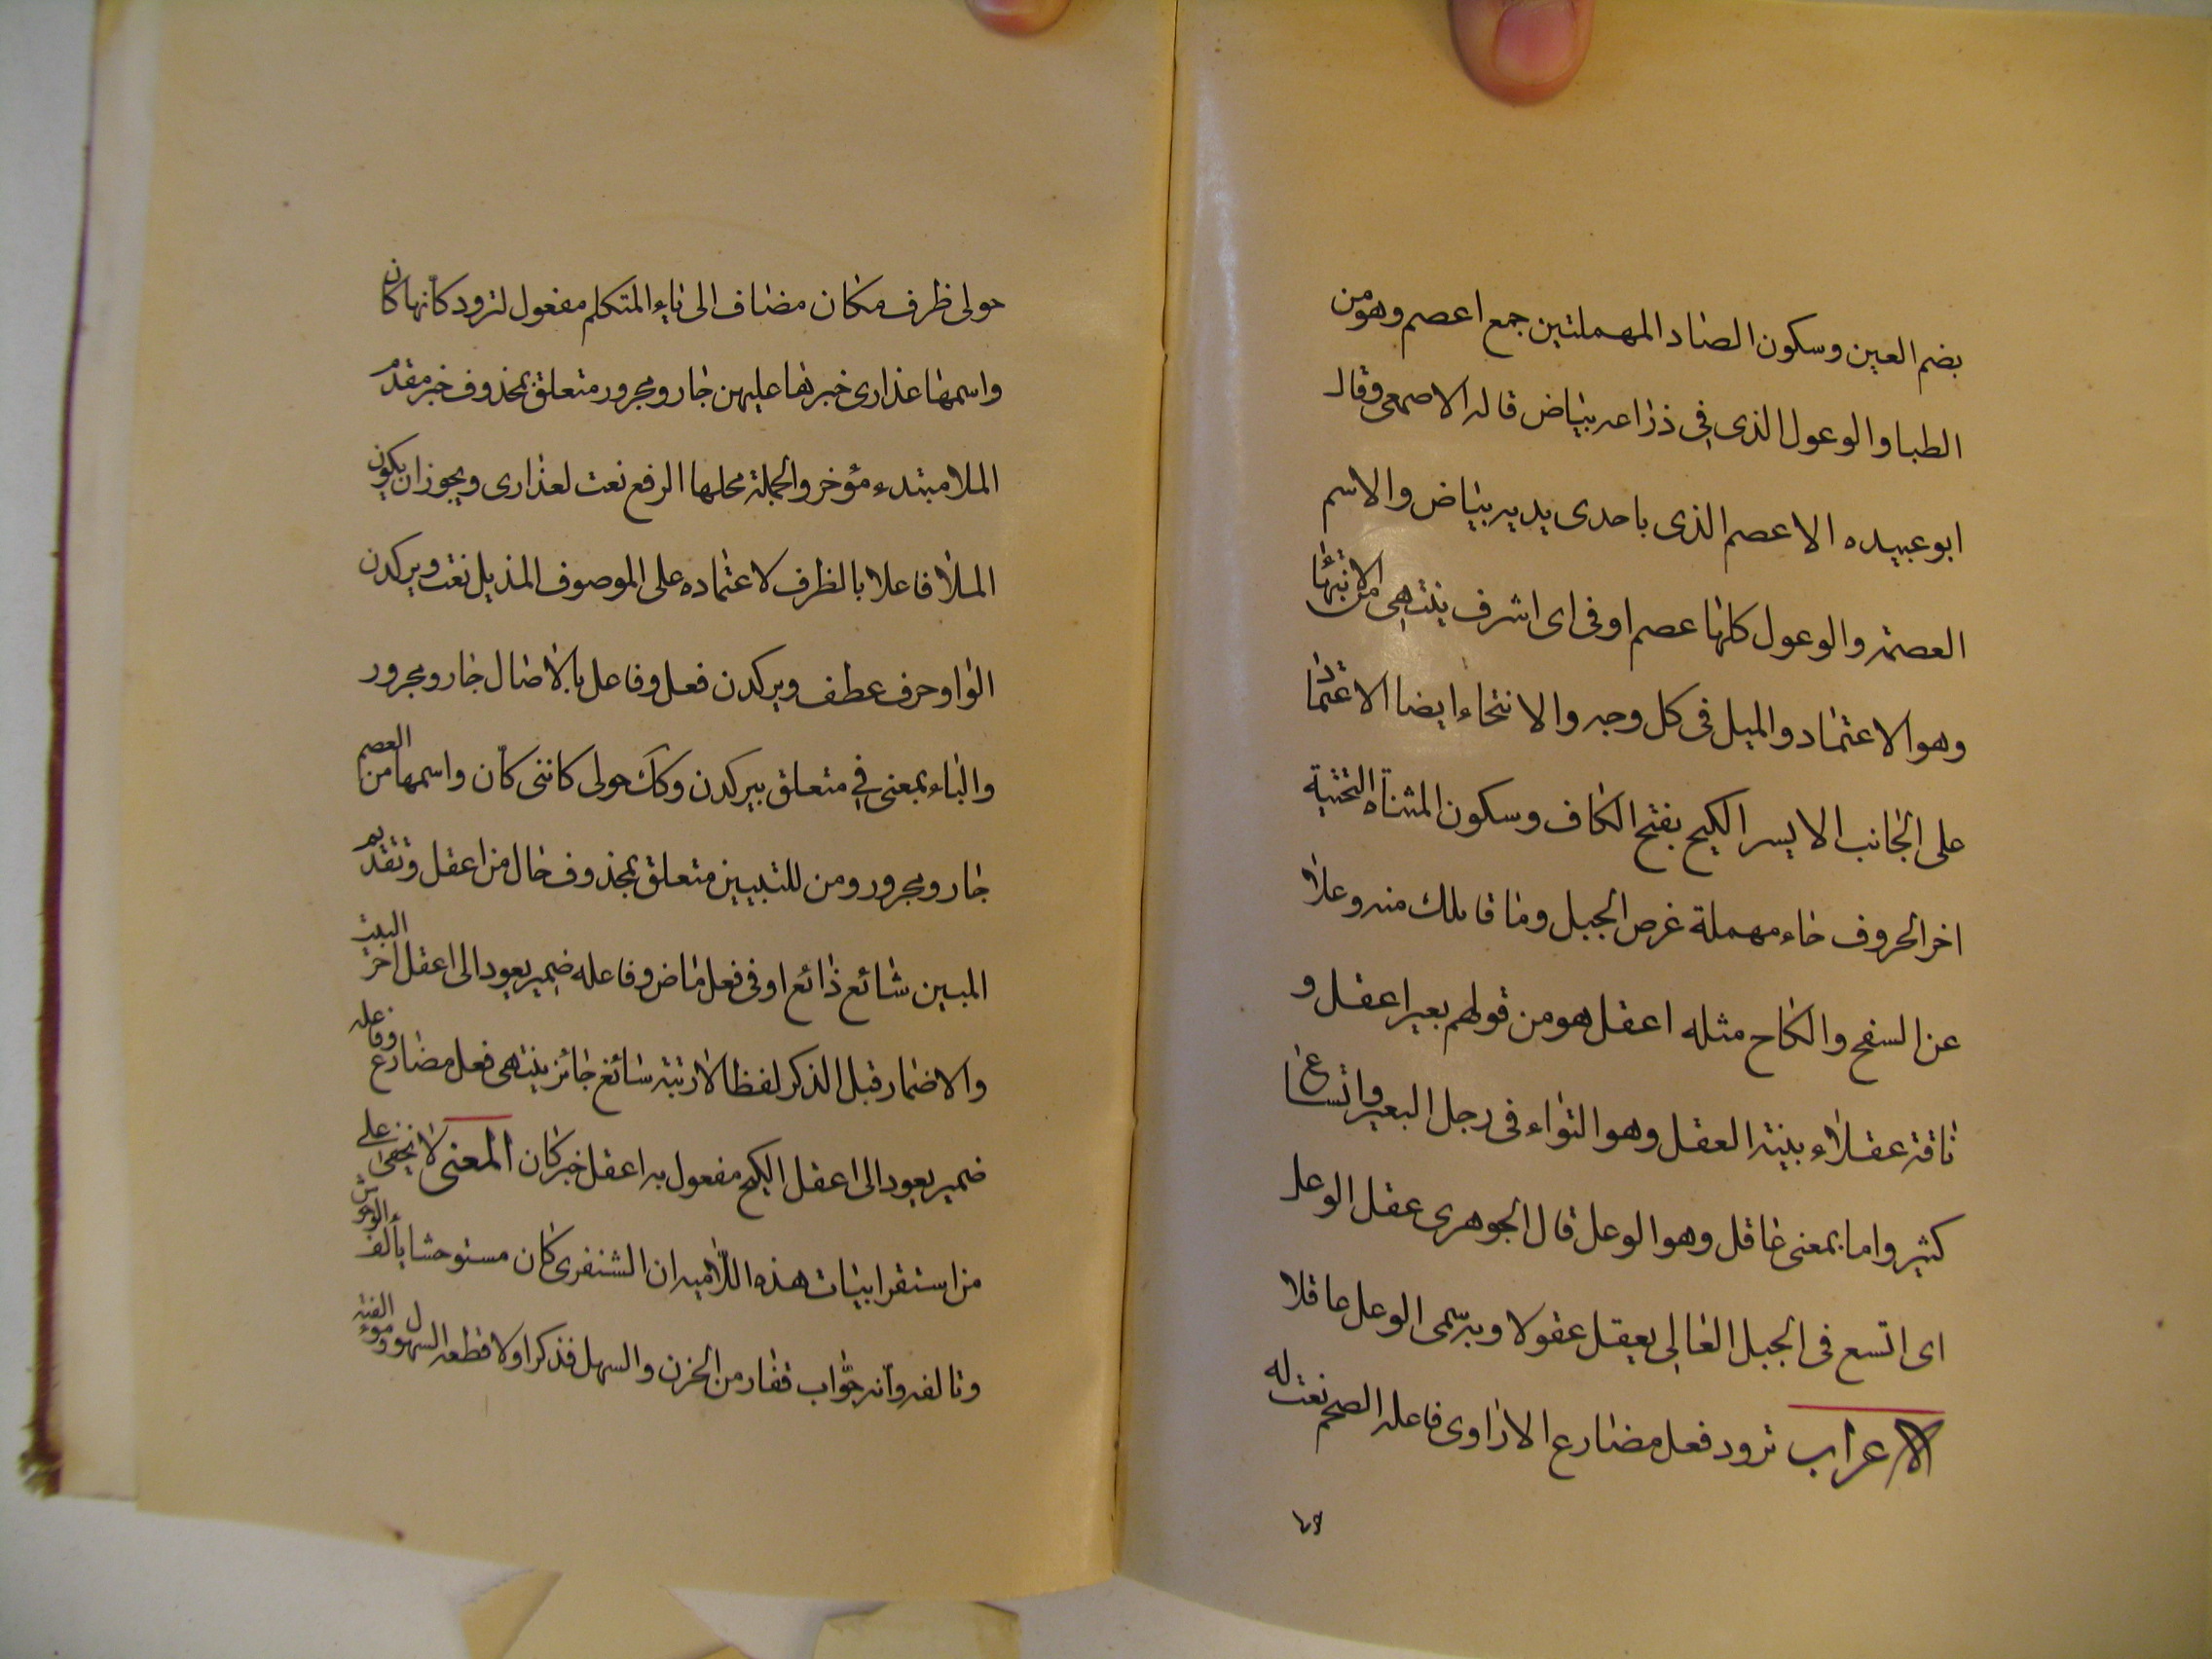 بضم العين وسكون الصاد المهملتين جمع اعصم وهو من
الظبا والوعول الذى فى ذراعه بياض قاله الاصمعى وقال
ابو عبيده الاعصم الذى باحدى يديه بياض والاسم
العصمة والوعول كلها عصم اوفى اى اشرف ينتهى من الانتهاء
وهو الاعتماد والميل فى كل وجه والانتحاء ايضا الاعتماد
على الجانب الايسر الكيح بفتح الكاف وسكون المثناة التحتية
اخر الحروف حاء مهملة عرض الجبل وما قابلك منه وعلا
عن السفح والكاح مثله اعقل هو من قولهم بعير اعقل و
ناقة عقلاء بينة العقل وهو التواء فى رجل البعير واتساع
كثير واما بمعنى عاقل وهو الوعل قال الجوهرى عقل الوعل
اى اتسع فى الجبل العالى يعقل عقولا وبه سمى الوعل عاقلا
الاعراب ترود فعل مضارع الاراوى فاعله الصحم نعت له
حولى ظرف مكان مضاف الى ياء المتكلم مفعول لترود كأنها كان
واسمها عذارى خبرها عليهن جار ومجرور متعلق بمحذوف خبر مقدم
الملا مبتدء مؤخر والجملة محلها الرفع نعت لعذارى ويجوز ان يكون
الملا فاعلا بالظرف لاعتماده على الموصوف المذيل نعت ويركدن
الواو حرف عطف ويركدن فعل وفاعل بالاصال جار ومجرور
والباء بمعنى في متعلق بيركدن وكك حولى كاننى كان واسمها من العصم
جار ومجرور ومن للتبيين متعلق بمحذوف حال من اعقل وتقديم
المبين شائع ذائع اوفى فعل ماض وفاعله ضمير يعود الى اعقل اخر البيت
والاضمار قبل الذكر لفظا لا رتبة سائغ جائز ينتهى فعل مضارع وفاعله
ضمير يعود الى اعقل الكيح مفعول به اعقل خبر كان المعنى لا يخفى على
من استقرا ابيات هذه اللامية ان الشنفرى كان مستوحشا يألف الوحوش
وتالفه وانه جوّاب قفار من الحزن والسهل فذكر اولا قطعه السهول و